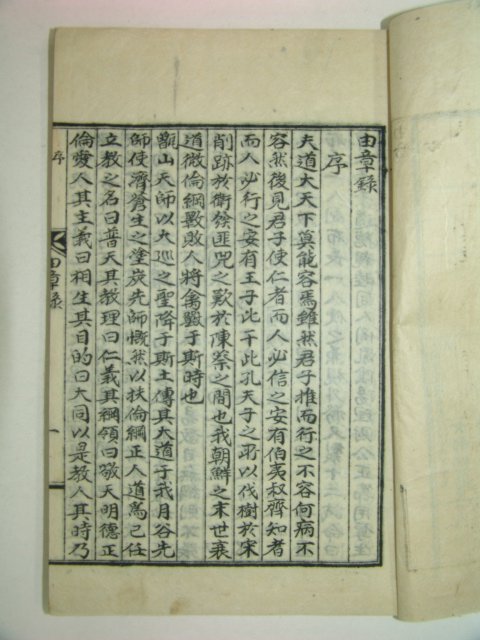 由章錄
序
夫道大天下莫能容焉雖然君子推而行之不容何病不
容然後見君子使仁者而人必信之安有伯夷叔齊知者
而人必行之安有王子比干此孔天子之所以伐樹於宋
削跡於衛餘匪兕之歎於陳蔡之間也我朝鮮之末世衰
道微倫綱斁敗人將禽獸于斯時也
甑山天師以大巡之聖降于斯土傳其大道于我月谷先
師使濟蒼生之塗炭先師慨然以扶倫綱正人道爲己任
立教之名曰普天其教理曰仁義其綱領曰敬天明德正
倫愛人其主義曰相生其目的曰大同以是教人其時乃
序
由章錄
一